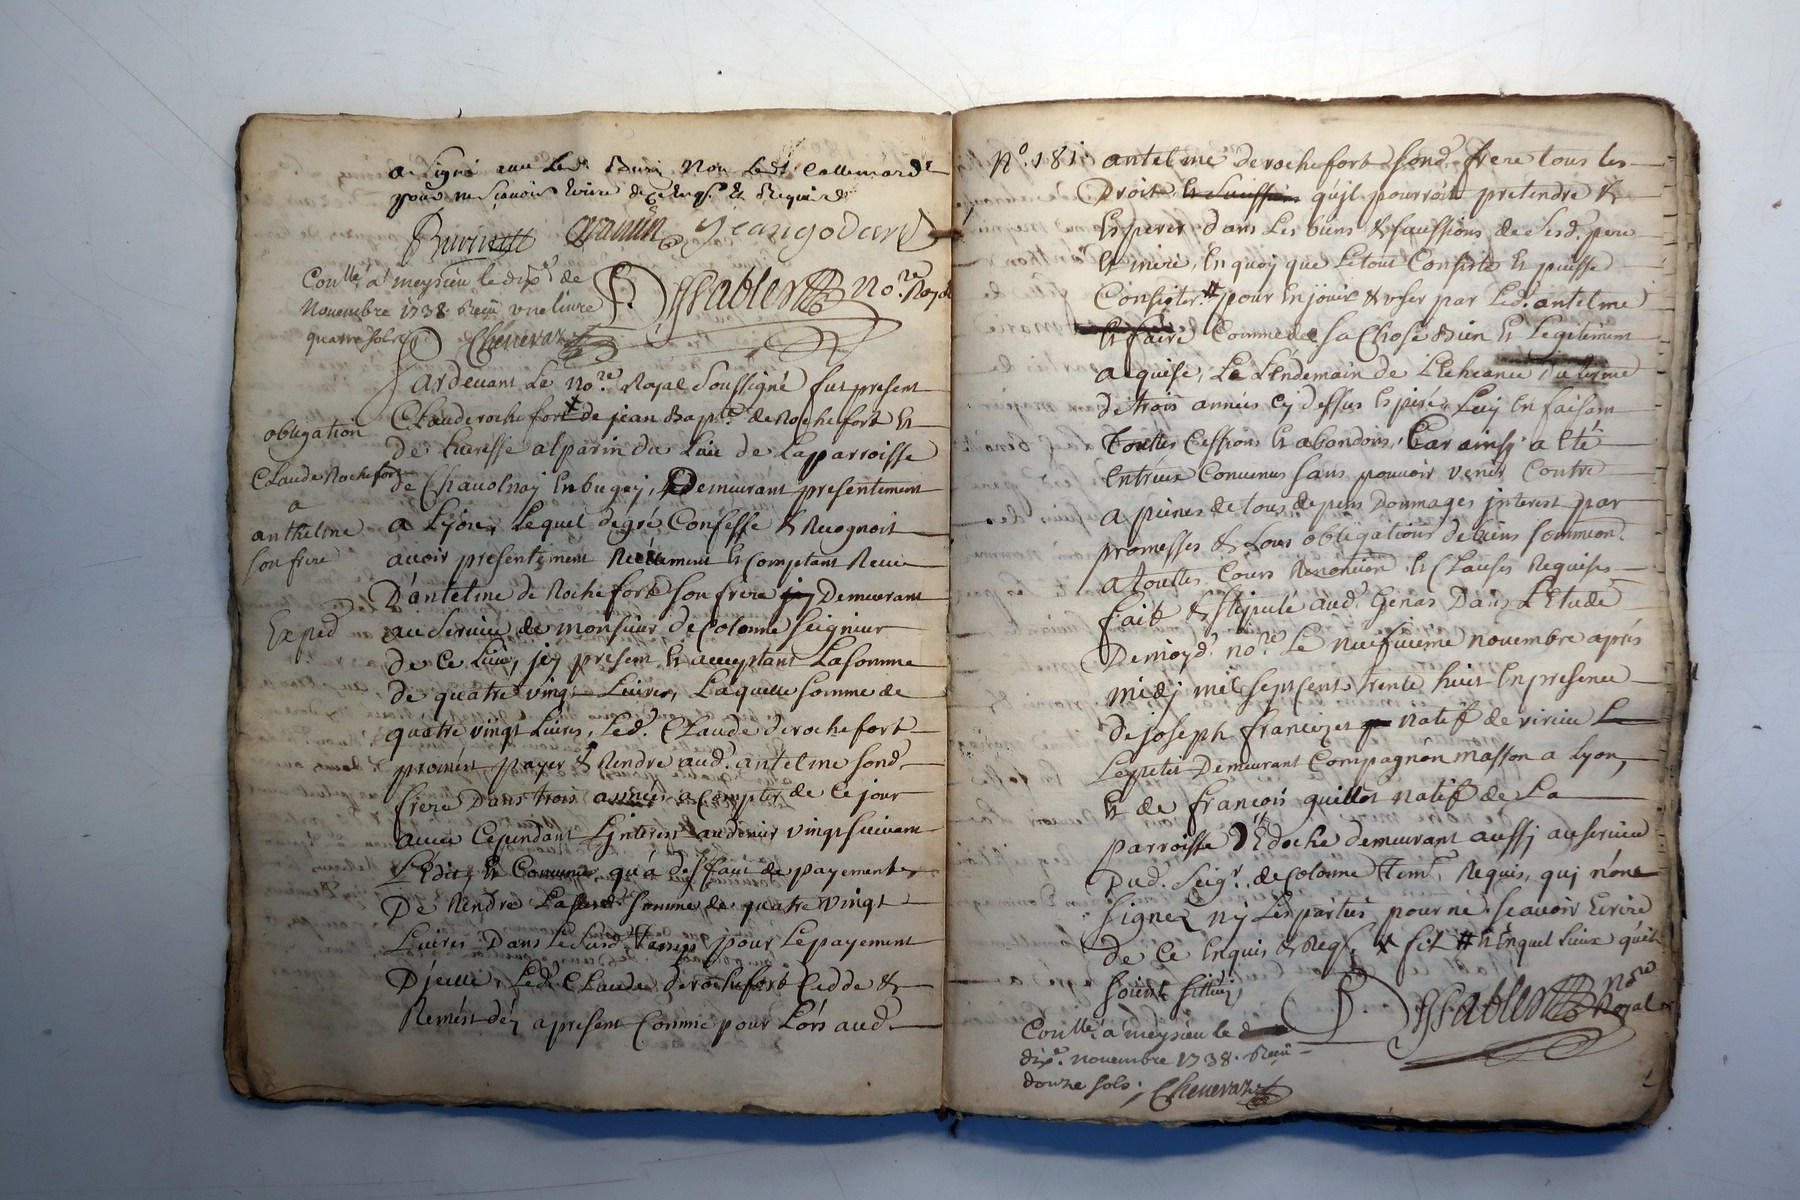 a signé avec led. Buri Non led. Callemard
pour ne sçavoir Ecrire de ce Enqs. & Requis
Jean godard
Con.llé a meysieu le dix.e de
Novembre 1738. Reçu une livre
quatre sols Chenevaz
Sablier No.re Royal
Pardevant Le No.re Royal Soussigné fut present
obligation
Claude Rochefort
a
anthelme
son frere
Exped
Clauderochefort # de jean Bap.te de Rochefort &
de du Lieu de La parroisse
de En bugey, Demeurant presentement
a Lyon, Lequel de gré Confesse & Recognoit
avoir presentement Reellement & Comptant Receu
D'antelme de Rochefort son frere Demeurant
au Service de monsieur de Colonne Seigneur
de ce Lieu, jcy present & acceptant La somme
de quatre vingt Livres, Laquelle somme de
quatre vingt Livres, Led. Claude derochefort
promest payer & Rendre aud. antelme sond.
frere Dans trois années a Compter de ce jour
avec Cependant L'jnterest au denier vingt suivant
L'Edit, & qu'a deffaut de payement
De Rendre Lasusd. somme de quatre vingt
Livres Dans Le susd. Temps pour Le payement
D'jcelle, Led. Claude derochefort Cedde &
Remest dez apresent Comme pour Lors aud.
N.o 181 antelme derochefort sond. frere tous les
Droits qu'jl pourroit pretendre &
Esperer dans Les biens & sussions de sesd. pere
& mere, En quoy que Letout Consiste & puisse
Consister # pour En jouir & user par Led. antelme
& faire Comme de sa Chose Bien & Legitiment
acquise, Le Lendemain de L'Echeance du terme
de trois années cy dessus Expiré, Luy En faisant
Touttes Cessions & abandons, Car ainsy a Eté
Entreux Convenus sans pouvoir venir Contre
a peines de tous depens Dommages jnterest par
promesses & sous obligations de biens
a touttes Cours & Clauses Requises
fait & stipulé aud. Genas Dans L'Etude
De moyd. no.re Le Neufvieme novembre aprés
midj mil sept cent trente huit En presence
de joseph natif de virieu Le
Lepetit Demeurant Compagnon masson a Lyon,
& de françois guillot natif de La
parroisse D'Edoche demeurant aussj au service
Dud. Seig.r de Colonne Tem. Requis, quj n'ont
Signez ny Les parties pour ne sçavoir Ecrire
de ce Enquis & Reqs. # fil # & En quel Lieux qu'ils
soient
Sablier No.re Royal
Con.llé a meysieu le
dix.e novembre 1738. Reçu
douze sols, Chenevaz